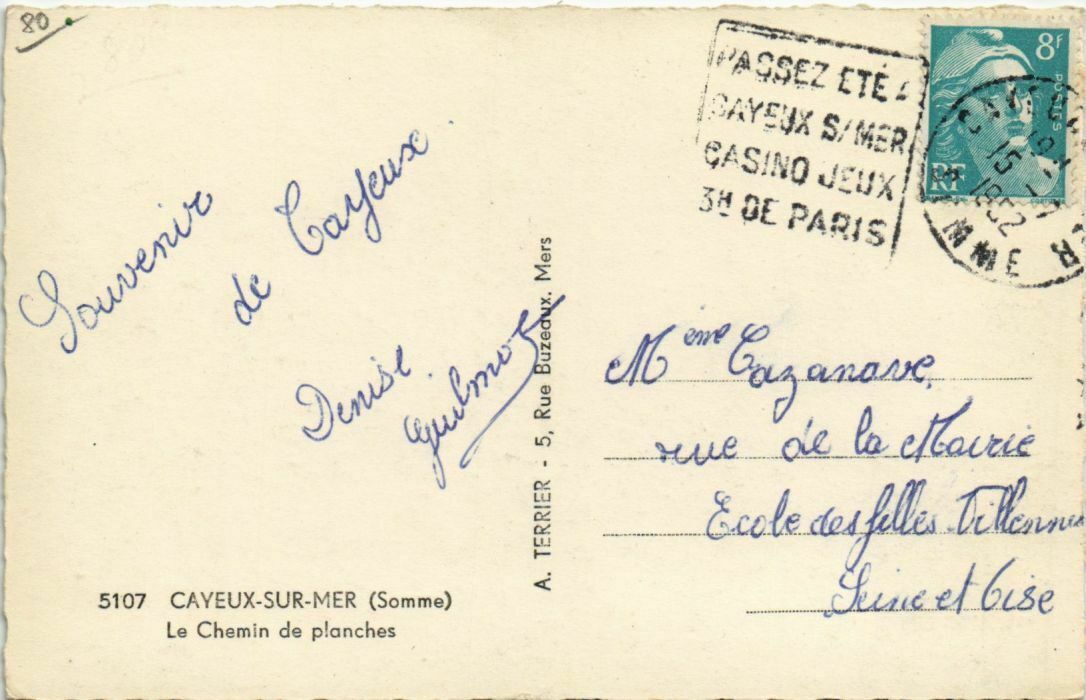 80
Souvenir
de Cayeux.
Denise
Guilmot
5107 CAYEUX-SUR-MER (Somme)
Le Chemin de planches
A. TERRIER - 5, Rue Buzeaux, Mers
PASSEZ ETÉ A
CAYEUX S/MER
CASINO JEUX
3H DE PARIS
8F
POSTES
RF
15
1952
SOMME
Mème Cazanave,
rue de la Mairie
Ecole des filles Villennes
Seine et Oise